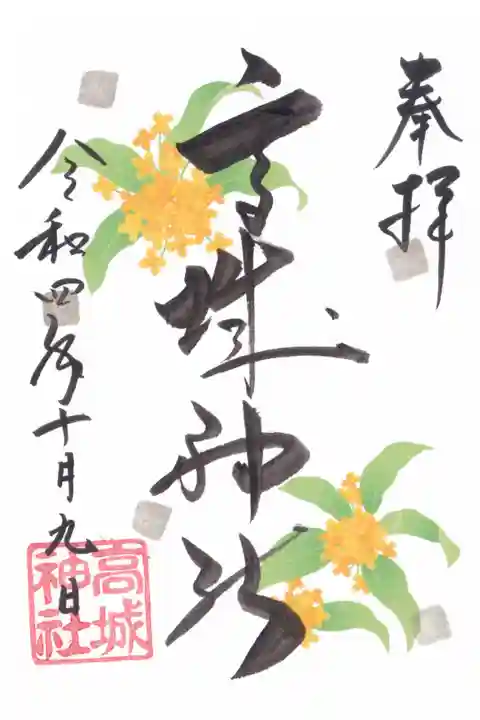 奉拝
高城神社
令和四年十月九日
高城
神社